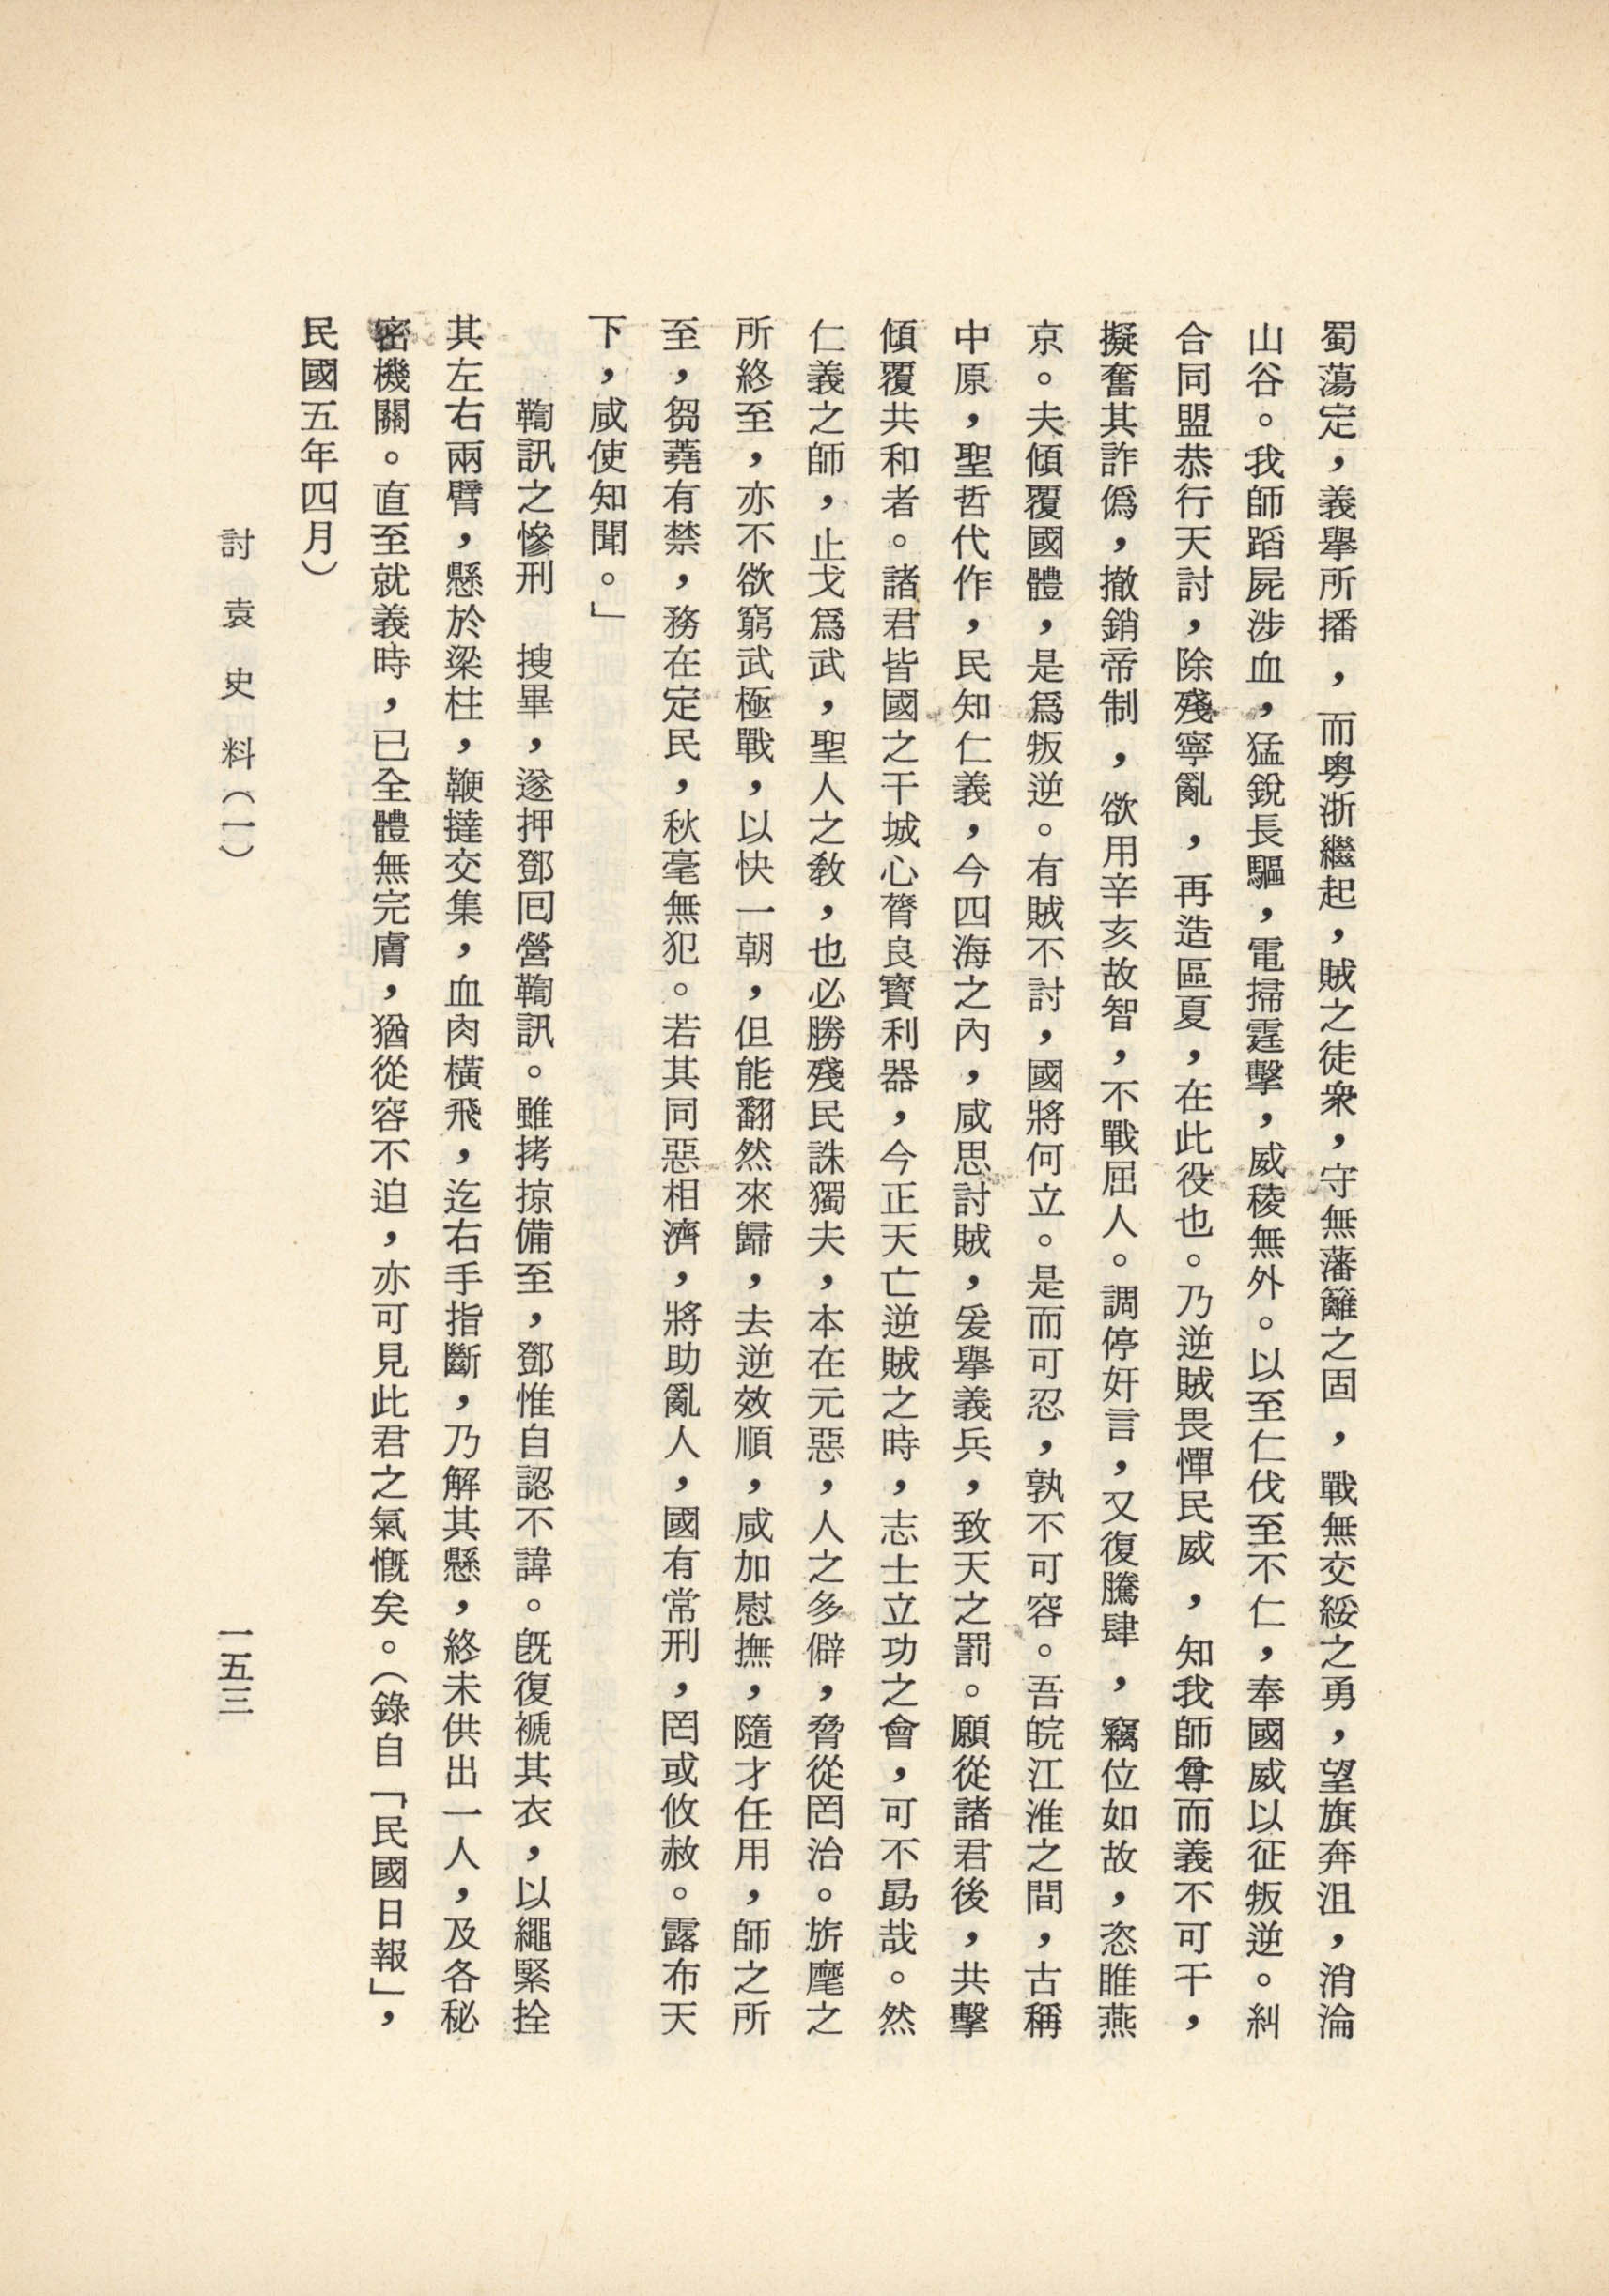 蜀蕩定，義舉所播，而粵浙繼起，賊之徒衆，守無藩籬之固，戰無交綏之勇，望旗奔沮，消淪
山谷。我師蹈屍涉血，猛銳長驅，電掃霆擊，威稜無外。以至仁伐至不仁，奉國威以征叛逆。糾
合同盟恭行天討，除殘寧亂，再造區夏，在此役也。乃逆賊畏憚民威，知我師尊而義不可干，
擬奮其詐僞，撤銷帝制，欲用辛亥故智，不戰屈人。調停奸言，又復騰肆，竊位如故，恣睢燕
京。夫傾覆國體，是爲叛逆。有賊不討，國將何立。是而可忍，孰不可容。吾皖江淮之間，古稱
中原，聖哲代作，民知仁義，今四海之內，咸思討賊，爰舉義兵，致天之罰。願從諸君後，共擊
傾覆共和者。諸君皆國之干城心膂良寳利器，今正天亡逆賊之時，志士立功之會，可不勗哉。然
仁義之師，止戈爲武，聖人之敎，也必勝殘民誅獨夫，本在元惡，人之多僻，脅從罔治。旂麾之
所終至，亦不欲窮武極戰，以快一朝，但能翻然來歸，去逆效順，咸加慰撫，隨才任用，師之所
至，芻蕘有禁，務在定民，秋毫無犯。若其同惡相濟，將助亂人，國有常刑，罔或攸赦。露布天
下，咸使知聞。」
鞫訊之慘刑　搜畢，遂押鄧囘營鞫訊。雖拷掠備至，鄧惟自認不諱。旣復褫其衣，以繩緊拴
其左右兩臂，懸於梁柱，鞭撻交集，血肉橫飛，迄右手指斷，乃解其懸，終未供出一人，及各秘
密機關。直至就義時，已全體無完膚，猶從容不迫，亦可見此君之氣慨矣。（錄自「民國日報」，
民國五年四月）
討袁史料（一）
一五三